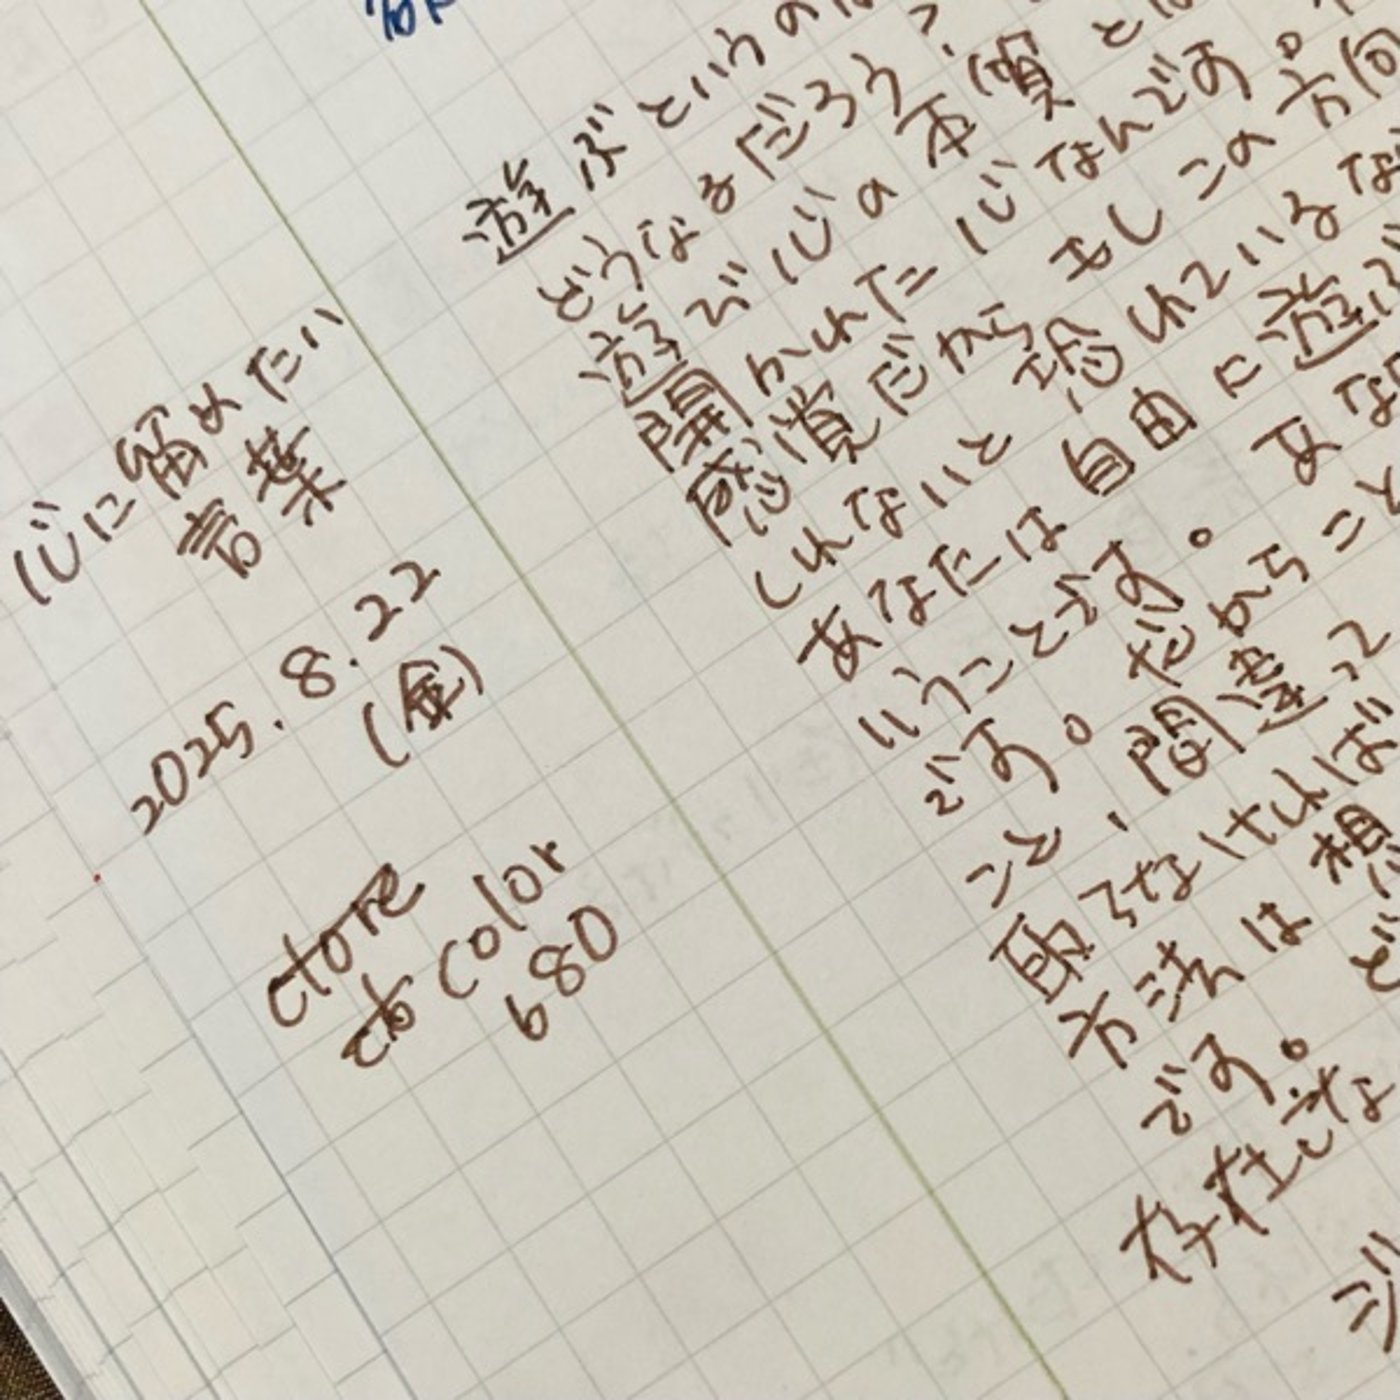 心に留めたい
言葉
2025.8.22
(金)
store
color
680
遊ぶというのは
どうなるだろう?
遊びが心の本質と
開かれた心なんです。
感覚だから もしこの方向
しれないと恐れているな
あなたは自由に遊ぶ
いうことです。あな
です。だからこと
こと、間違って
取らなければ
方法は想
です。ど
存在しな